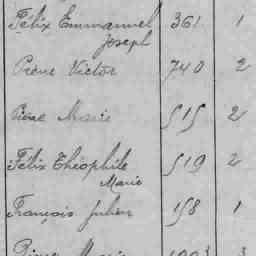 Félix Emmanuel 361 1
Joseph
Pierre Victor 740 2
Pierre Marie 515 2
Félix Théophile 519 2
Marie
François Julien 158 1
Pierre Marie 1003 3